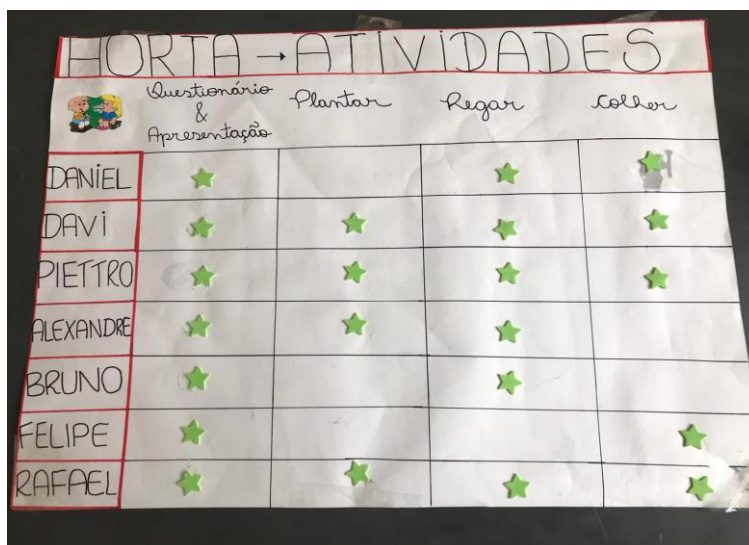 HORTA → ATIVIDADES
Questionário & Apresentação
Plantar
Regar
Colher
DANIEL
DAVI
PIETTRO
ALEXANDRE
BRUNO
FELIPE
RAFAEL